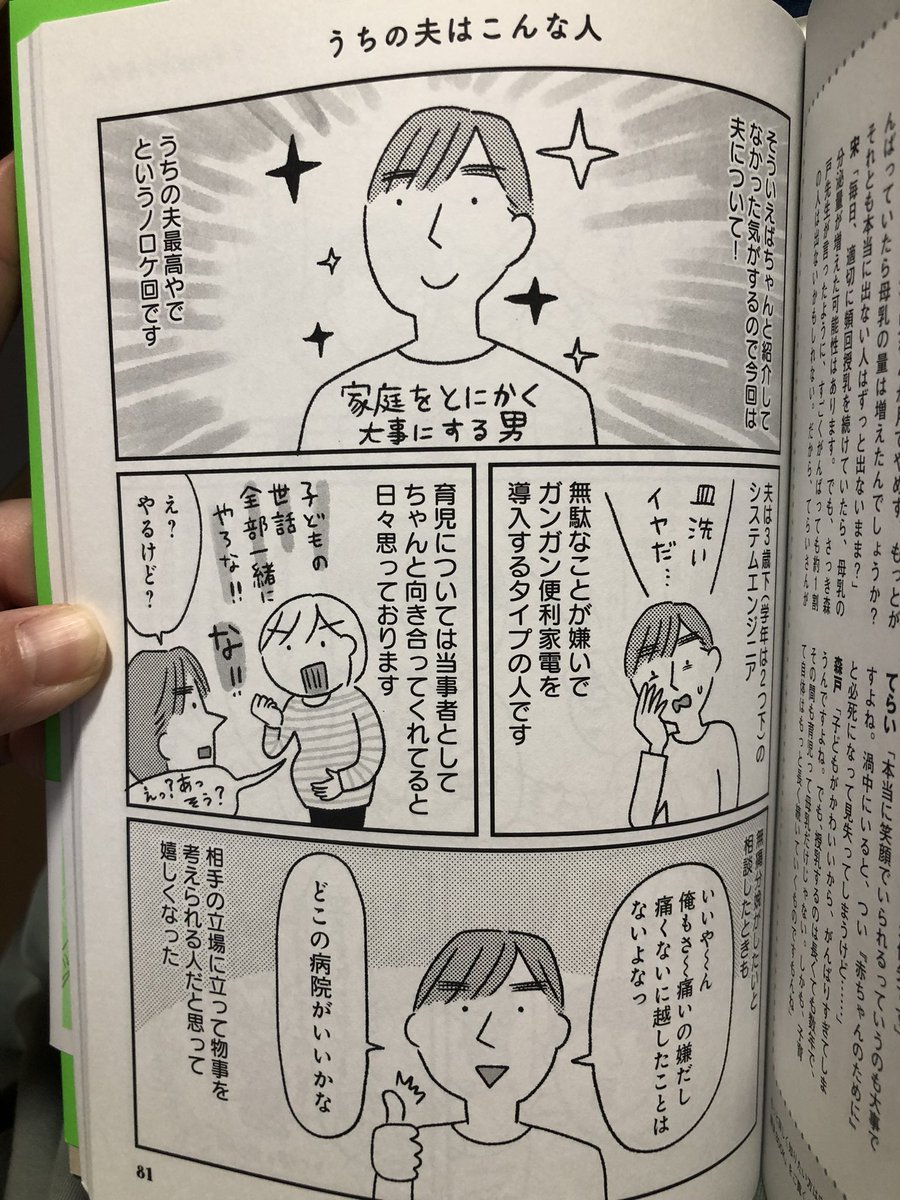 うちの夫はこんな人
そういえばちゃんと紹介して
なかった気がするので今回は
夫について!
家庭をとにかく
大事にする男
うちの夫最高やで
というノロケ回です
夫は3歳下(学年は2つ下)の
システムエンジニア
皿洗い
イヤだ…
無駄なことが嫌いで
ガンガン便利家電を
導入するタイプの人です
育児については当事者として
ちゃんと向き合ってくれてると
日々思っております
子どもの
世話
全部一緒に
やろな!!
な!!
え?
やるけど?
えっ?あっ
そう?
無痛分娩がしたいと
相談したときも
いいや〜〜ん
俺もさ〜痛いの嫌だし
痛くないに越したことは
ないよなっ
どこの病院がいいかな
相手の立場に立って物事を
考えられる人だと思って
嬉しくなった
81
んばっていたら母乳の量は増えたんでしょうか?
それとも本当に出ない人はずっと出ないまま?」
宋「毎日、適切に頻回授乳を続けていたら、母乳の
分泌量が増えた可能性はあります。でも、さっき森
戸先生が言ったように、すごくがんばっても約1割
の人は出ないかもしれない。だから、てらいさんが
てらい「本当に笑顔でいられるっていうのも大事で
すよね。渦中にいると、つい『赤ちゃんのために』
と必死になって見失ってしまうけど……」
森戸「子どもがかわいいから、がんばり
うんですよね。でも、授乳するのは長くても